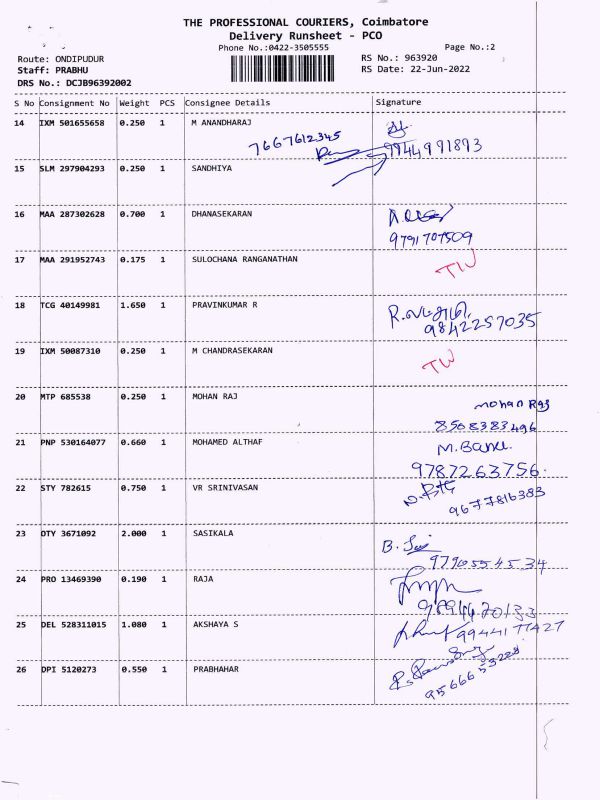 THE PROFESSIONAL COURIERS, Coimbatore
Delivery Runsheet - PCO
Phone No.:0422-3505555
Page No.:2
Route: ONDIPUDUR
RS No.: 963920
Staff: PRABHU
RS Date: 22-Jun-2022
DRS No.: DCJB96392002
S No Consignment No Weight PCS Consignee Details Signature
14 IXM 501655658 0.250 1 M ANANDHARAJ
7667612345
9944991893
15 SLM 297904293 0.250 1 SANDHIYA
16 MAA 287302628 0.700 1 DHANASEKARAN
9791707509
17 MAA 291952743 0.175 1 SULOCHANA RANGANATHAN
18 TCG 40149981 1.650 1 PRAVINKUMAR R
9842257035
19 IXM 50087310 0.250 1 M CHANDRASEKARAN
20 MTP 685538 0.250 1 MOHAN RAJ
Mohan Raj
8508383496
21 PNP 530164077 0.660 1 MOHAMED ALTHAF
M. Banu.
9787263756.
22 STY 782615 0.750 1 VR SRINIVASAN
9677816383
23 OTY 3671092 2.000 1 SASIKALA
9790554534
24 PRO 13469390 0.190 1 RAJA
25 DEL 528311015 1.080 1 AKSHAYA S
9944177427
26 DPI 5120273 0.550 1 PRABHAHAR